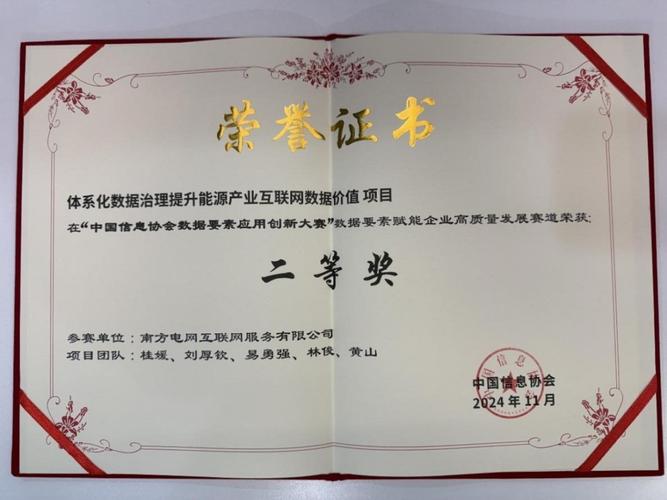 荣誉证书
体系化数据治理提升能源产业互联网数据价值 项目
在“中国信息协会数据要素应用创新大赛”数据要素赋能企业高质量发展赛道荣获:
二等奖
参赛单位：南方电网互联网服务有限公司
项目团队：桂媛、刘厚钦、易勇强、林俊、黄山
中国信息协会
中国信息协会
2024年11月